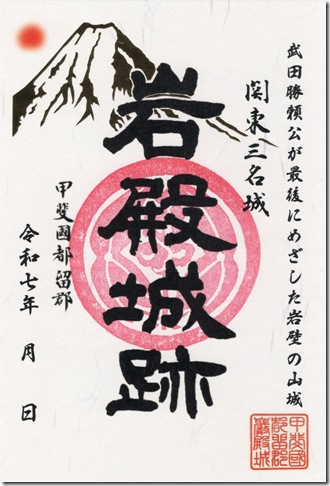 武田勝頼公が最後にめざした岩壁の山城
関東三名城
岩殿城跡
甲斐國都留郡
令和七年　月　日
甲斐國
都留郡
巖殿城